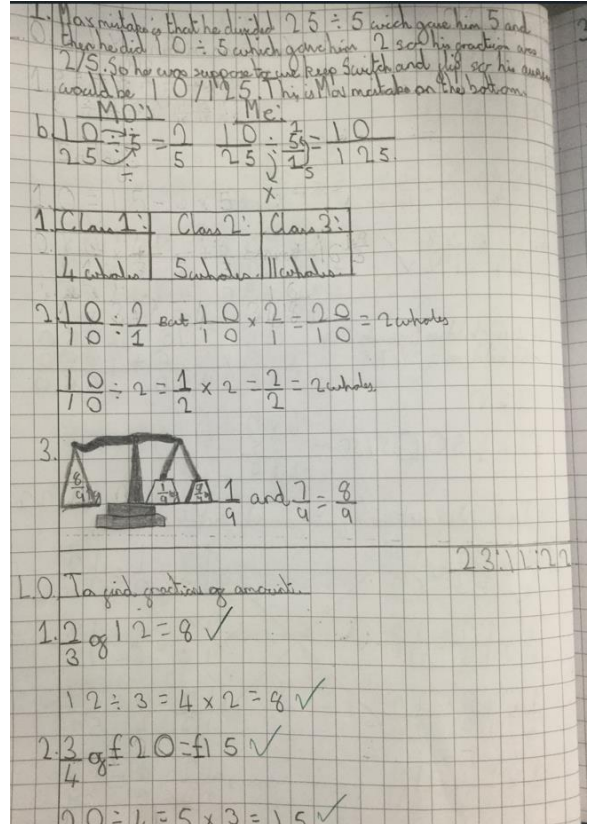 Mo's mistake is that he divided 25 ÷ 5 wich gave him 5 and
then he did 10 ÷ 5 which gave him 2 so his fraction was
2/5. So he was suppose to use keep Switch and flip so his answer
would be 10/125. This is Mo's mistake on the bottom.
MO's Me:
b 10/25 ÷ 5 = 2/5 10/25 ÷ 5/1 = 10/125
÷ x
1. Class 1: Class 2: Class 3:
4 wholes 5 wholes 11 wholes
2. 10/10 ÷ 2/1 but 10/10 x 2/1 = 20/10 = 2 wholes
10/10 ÷ 2 = 1/2 x 2 = 2/2 = 2 wholes
3.
8/9 1/9
1/9 and 7/9 = 8/9
23:11:22
L.O. To find fractions of amounts.
1. 2/3 of 12 = 8 ✓
12 ÷ 3 = 4 x 2 = 8 ✓
2. 3/4 of £20 = £15 ✓
20 ÷ 4 = 5 x 3 = 15 ✓